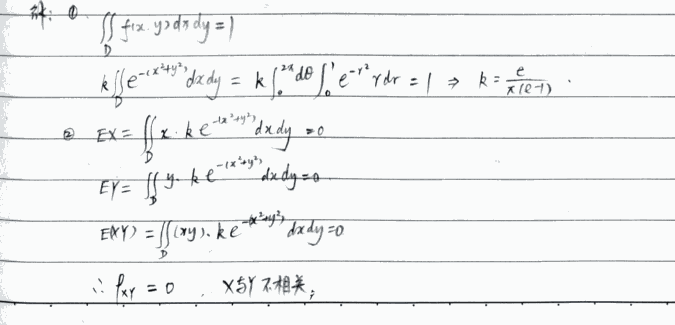 解: ① ∬_D f(x,y)dxdy=1
k∬_D e^{-(x²+y²)}dxdy = k∫_0^{2π}dθ∫_0^1 e^{-r²}rdr = 1 ⇒ k = e/π(e-1) .
② EX = ∬_D x·ke^{-(x²+y²)}dxdy=0
EY = ∬_D y·ke^{-(x²+y²)}dxdy=0
E(XY) = ∬_D (xy)·ke^{-(x²+y²)}dxdy=0
∴ ρ_{XY} = 0 . X与Y不相关;